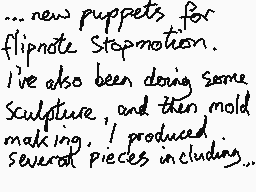 ...new puppets for
flipnote stopmotion.
I've also been doing some
sculpture, and then mold
making. I produced
several pieces including...